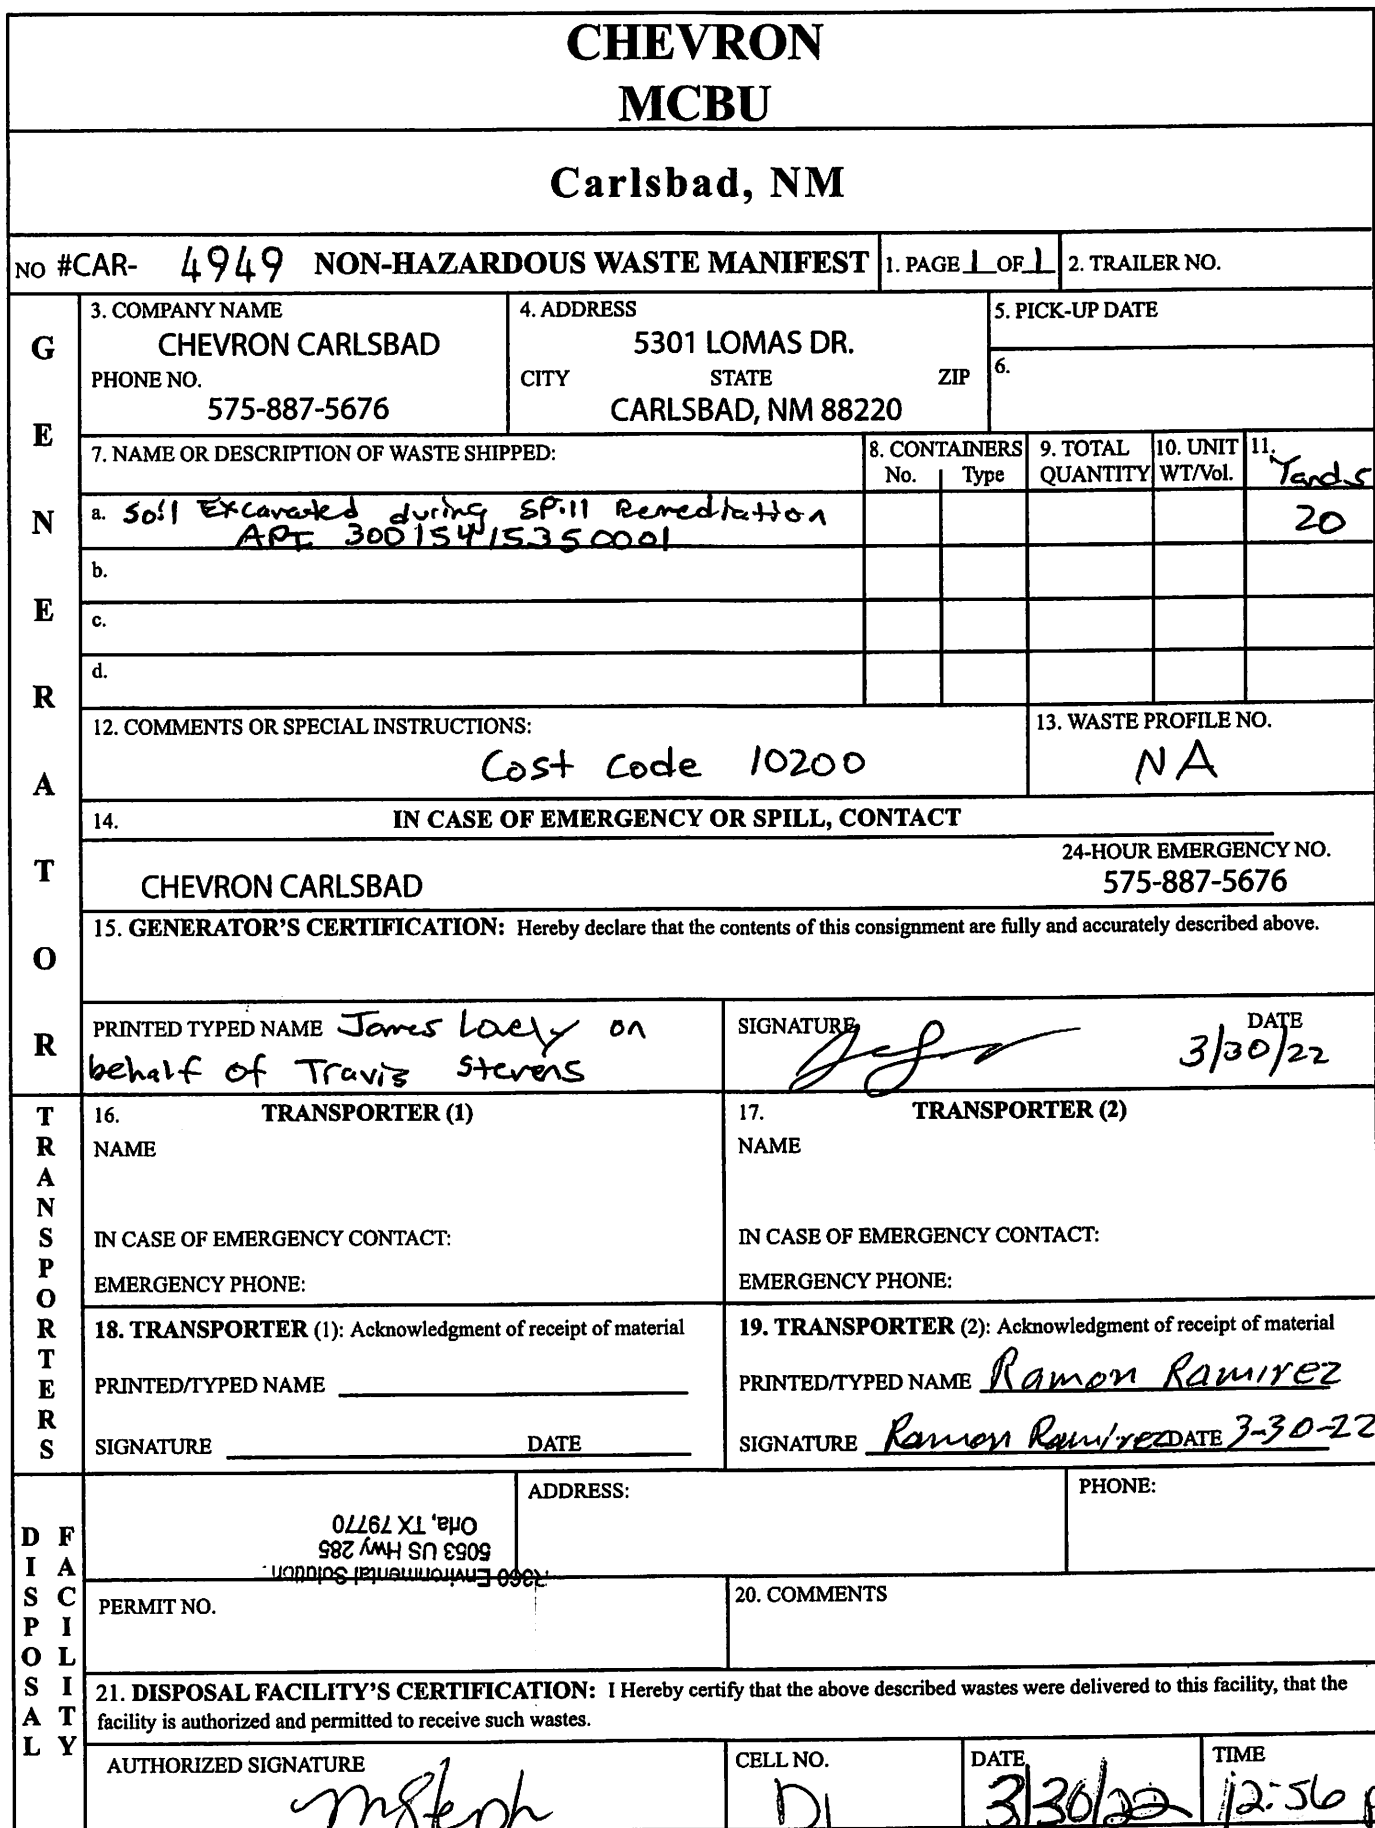 CHEVRON
MCBU
Carlsbad, NM
NO #CAR- 4949 NON-HAZARDOUS WASTE MANIFEST 1. PAGE 1 OF 1 2. TRAILER NO.
GENERATOR
3. COMPANY NAME
CHEVRON CARLSBAD
PHONE NO.
575-887-5676
4. ADDRESS
5301 LOMAS DR.
CITY STATE ZIP
CARLSBAD, NM 88220
5. PICK-UP DATE
6.
7. NAME OR DESCRIPTION OF WASTE SHIPPED:
8. CONTAINERS
No. Type
9. TOTAL
QUANTITY
10. UNIT
WT/Vol.
11.
Yards
a. Soil Excavated during Spill Remediation
API 30015415350001
20
b.
c.
d.
12. COMMENTS OR SPECIAL INSTRUCTIONS:
Cost Code 10200
13. WASTE PROFILE NO.
NA
14. IN CASE OF EMERGENCY OR SPILL, CONTACT
24-HOUR EMERGENCY NO.
CHEVRON CARLSBAD 575-887-5676
15. GENERATOR'S CERTIFICATION: Hereby declare that the contents of this consignment are fully and accurately described above.
PRINTED TYPED NAME James on
behalf of Travis Stevens
SIGNATURE
DATE
3/30/22
TRANSPORTERS
16. TRANSPORTER (1)
NAME
IN CASE OF EMERGENCY CONTACT:
EMERGENCY PHONE:
17. TRANSPORTER (2)
NAME
IN CASE OF EMERGENCY CONTACT:
EMERGENCY PHONE:
18. TRANSPORTER (1): Acknowledgment of receipt of material
PRINTED/TYPED NAME
SIGNATURE DATE
19. TRANSPORTER (2): Acknowledgment of receipt of material
PRINTED/TYPED NAME Ramon Ramirez
SIGNATURE Ramon Ramirez DATE 3-30-22
DISPOSAL FACILITY
R360 Environmental Solution
5053 US Hwy 285
Orla, TX 79770
ADDRESS:
PHONE:
PERMIT NO.
20. COMMENTS
21. DISPOSAL FACILITY'S CERTIFICATION: I Hereby certify that the above described wastes were delivered to this facility, that the
facility is authorized and permitted to receive such wastes.
AUTHORIZED SIGNATURE
CELL NO.
DATE
3/30/22
TIME
12:56 p